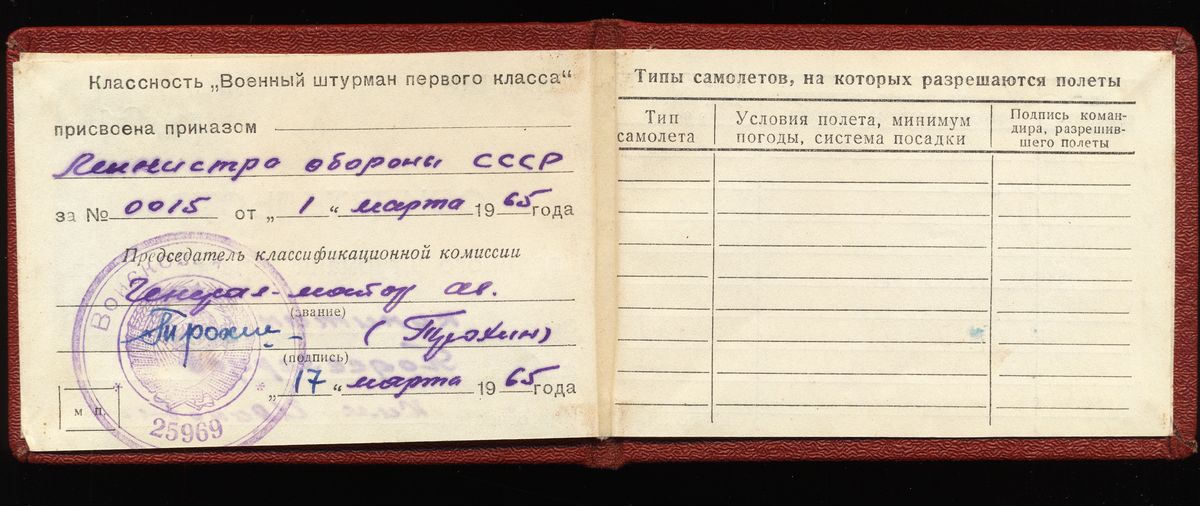 Классность „Военный штурман первого класса“
присвоена приказом
Министра обороны СССР
за № 0015 от „ 1 “ марта 1965 года
Председатель классификационной комиссии
Генерал-майор ав.
(звание)
(Трохин)
(подпись)
„17“ марта 1965 года
м п.
Войсковая
25969
Типы самолетов, на которых разрешаются полеты
Тип самолета
Условия полета, минимум погоды, система посадки
Подпись коман-
дира, разрешив-
шего полеты